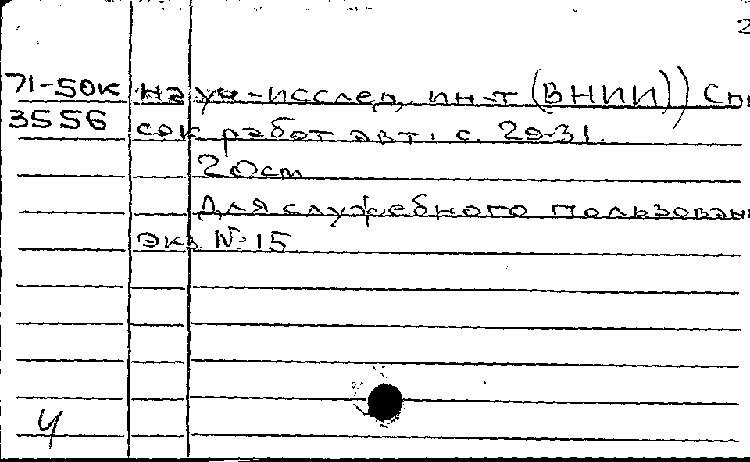 2
71-50к науч-исслед, ин-т (ВНИИ)) Сп
3556 сок работ авт. с. 29-31.
20cm
Для служебного пользован
экз №15
4